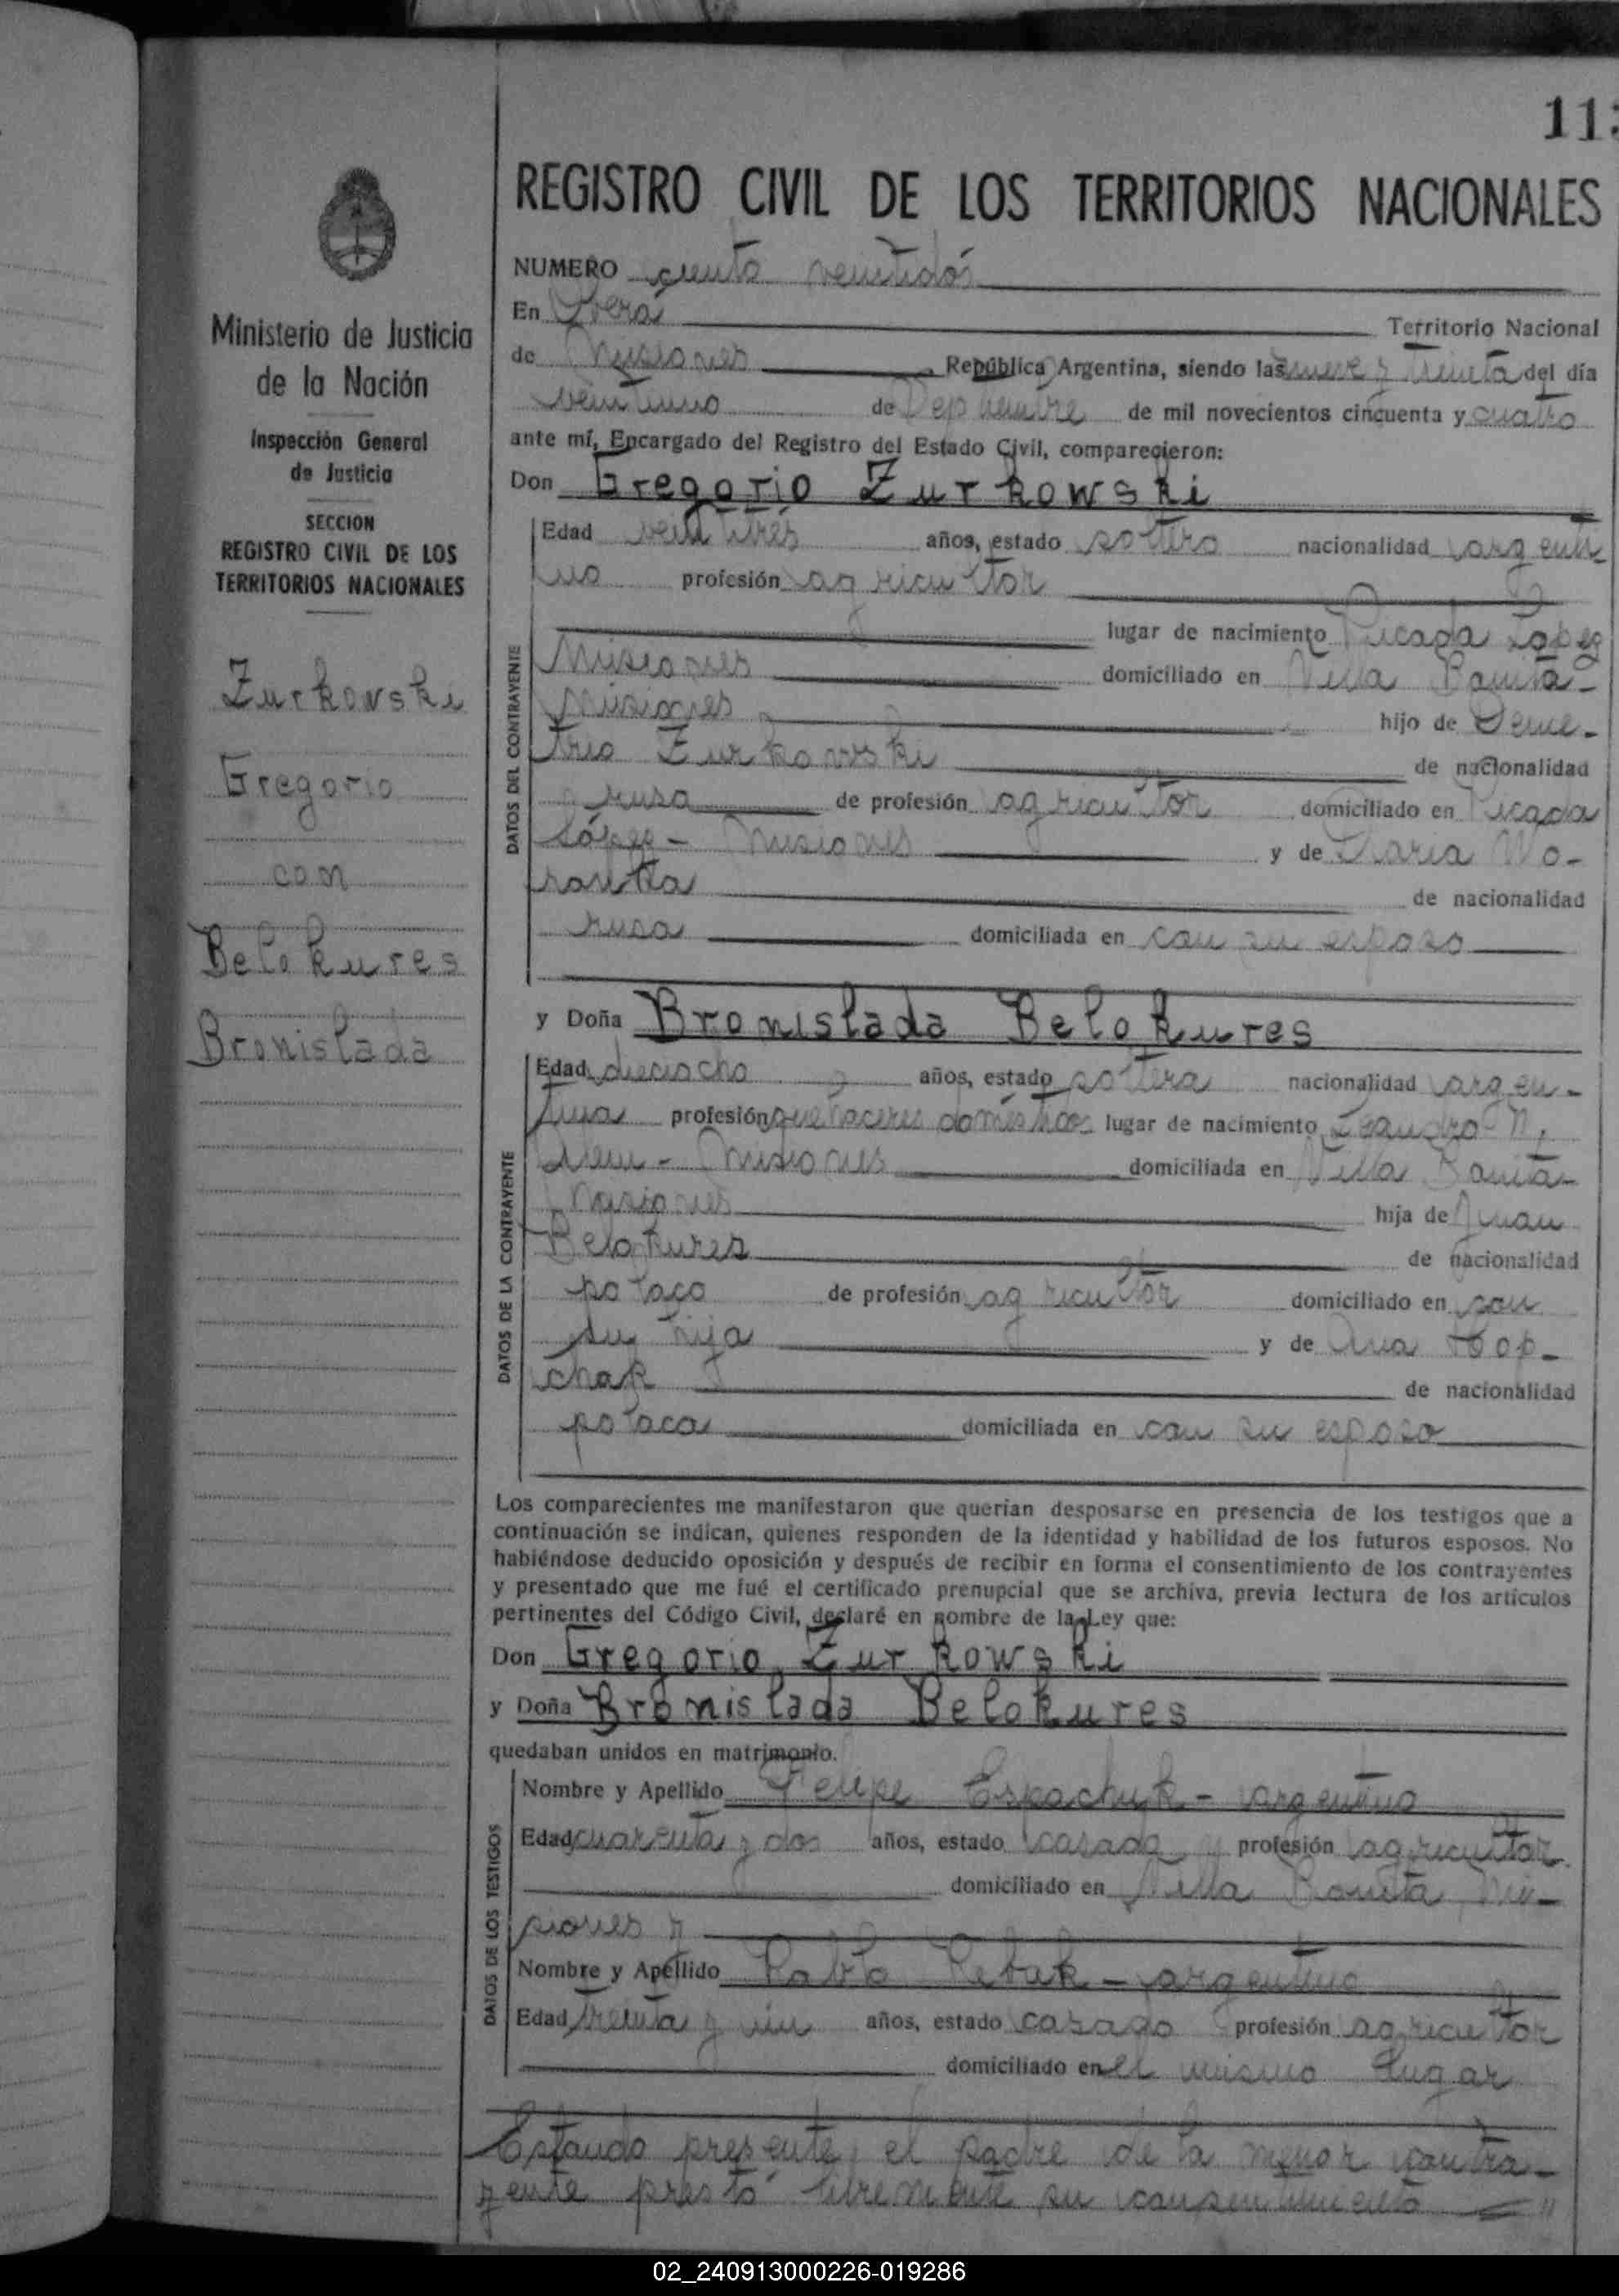 11
REGISTRO CIVIL DE LOS TERRITORIOS NACIONALES
Ministerio de Justicia
de la Nación
Inspección General
de Justicia
SECCION
REGISTRO CIVIL DE LOS
TERRITORIOS NACIONALES
Zurkovski
Gregorio
con
Belokures
Bronislada
NUMERO ciento veintidós
En Oberá Territorio Nacional
de Misiones República Argentina, siendo las nueve y treinta del día
veintiuno de Septiembre de mil novecientos cincuenta y cuatro
ante mí, Encargado del Registro del Estado Civil, comparecieron:
Don Gregorio Zurkowski
DATOS DEL CONTRAYENTE
Edad veintitres años, estado soltero nacionalidad argenti-
no profesión agricultor
lugar de nacimiento Picada López
Misiones domiciliado en Villa Bonita-
Misiones hijo de Deme-
trio Zurkowski de nacionalidad
rusa de profesión agricultor domiciliado en Picada
López - Misiones y de María Wo-
de nacionalidad
rusa domiciliada en con su esposo
y Doña Bronislada Belokures
DATOS DE LA CONTRAYENTE
Edad dieciocho años, estado soltera nacionalidad argen-
tina profesión quehaceres domésticos lugar de nacimiento Leandro N.
Alem - Misiones domiciliada en Villa Bonita-
Misiones hija de Juan
Belokures de nacionalidad
polaco de profesión agricultor domiciliado en con
su hija y de Ana Hop-
chak de nacionalidad
polaca domiciliada en con su esposo
Los comparecientes me manifestaron que querían desposarse en presencia de los testigos que a
continuación se indican, quienes responden de la identidad y habilidad de los futuros esposos. No
habiéndose deducido oposición y después de recibir en forma el consentimiento de los contrayentes
y presentado que me fué el certificado prenupcial que se archiva, previa lectura de los artículos
pertinentes del Código Civil, declaré en nombre de la Ley que:
Don Gregorio Zurkowski
y Doña Bronislada Belokures
quedaban unidos en matrimonio.
DATOS DE LOS TESTIGOS
Nombre y Apellido Felipe Espachuk - argentino
Edad cuarenta y dos años, estado casado profesión agricultor
domiciliado en Villa Bonita, Mi-
siones y
Nombre y Apellido Pablo - argentino
Edad treinta y un años, estado casado profesión agricultor
domiciliado en el mismo lugar
Estando presente el padre de la menor contra-
yente prestó libremente su consentimiento
02_240913000226-019286